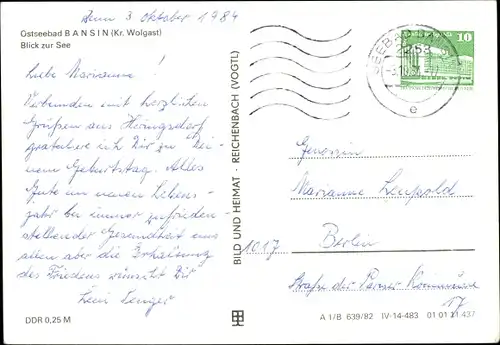 den 3 Oktober 1984
Ostseebad BANSIN (Kr. Wolgast)
Blick zur See
Liebe Marianne!
Verbunden mit herzlichen
Grüßen aus Heringsdorf
gratuliere ich Dir zu Dei-
nem Geburtstag. Alles
Gute im neuen Lebens-
jahr bei immer zufrieden
stellender Gesundheit uns
allen aber die Erhaltung
des Friedens wünscht Dir
DDR 0,25 M
BILD UND HEIMAT · REICHENBACH (VOGTL)
SEEBAD
2253
-3.10.84
e
10
Genossin
Marianne Leupold
1017 Berlin
Straße der Pariser Kommune
17
A 1/B 639/82 IV-14-483 01 01 11 437